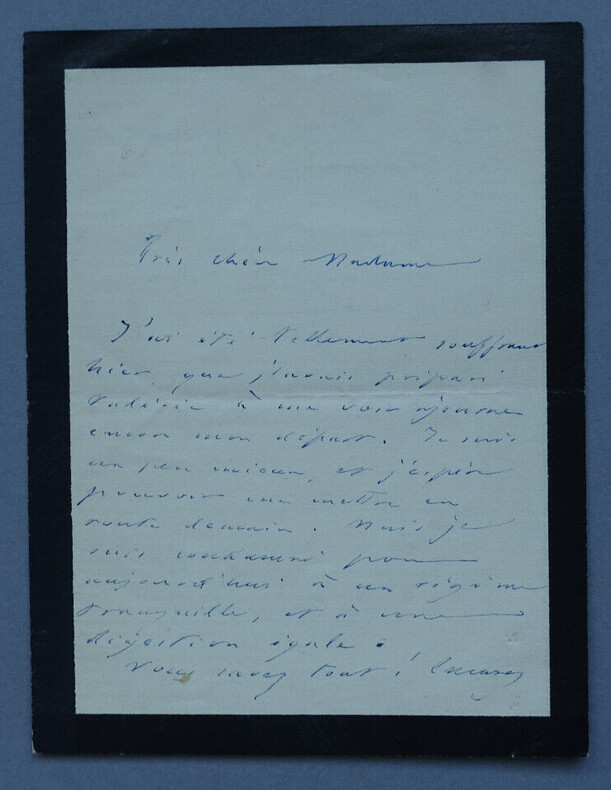 Très chère Madame
J'ai été tellement souffrant
hier, que j'avais préparé
Valérie à me voir ajourner
encore mon départ. Je suis
un peu mieux, et j'espère
pouvoir me mettre en
route demain. Mais je
suis condamné pour
aujourd'hui à un régime
tranquille, et à une
digestion égale :
Vous savez tout ! Excusez